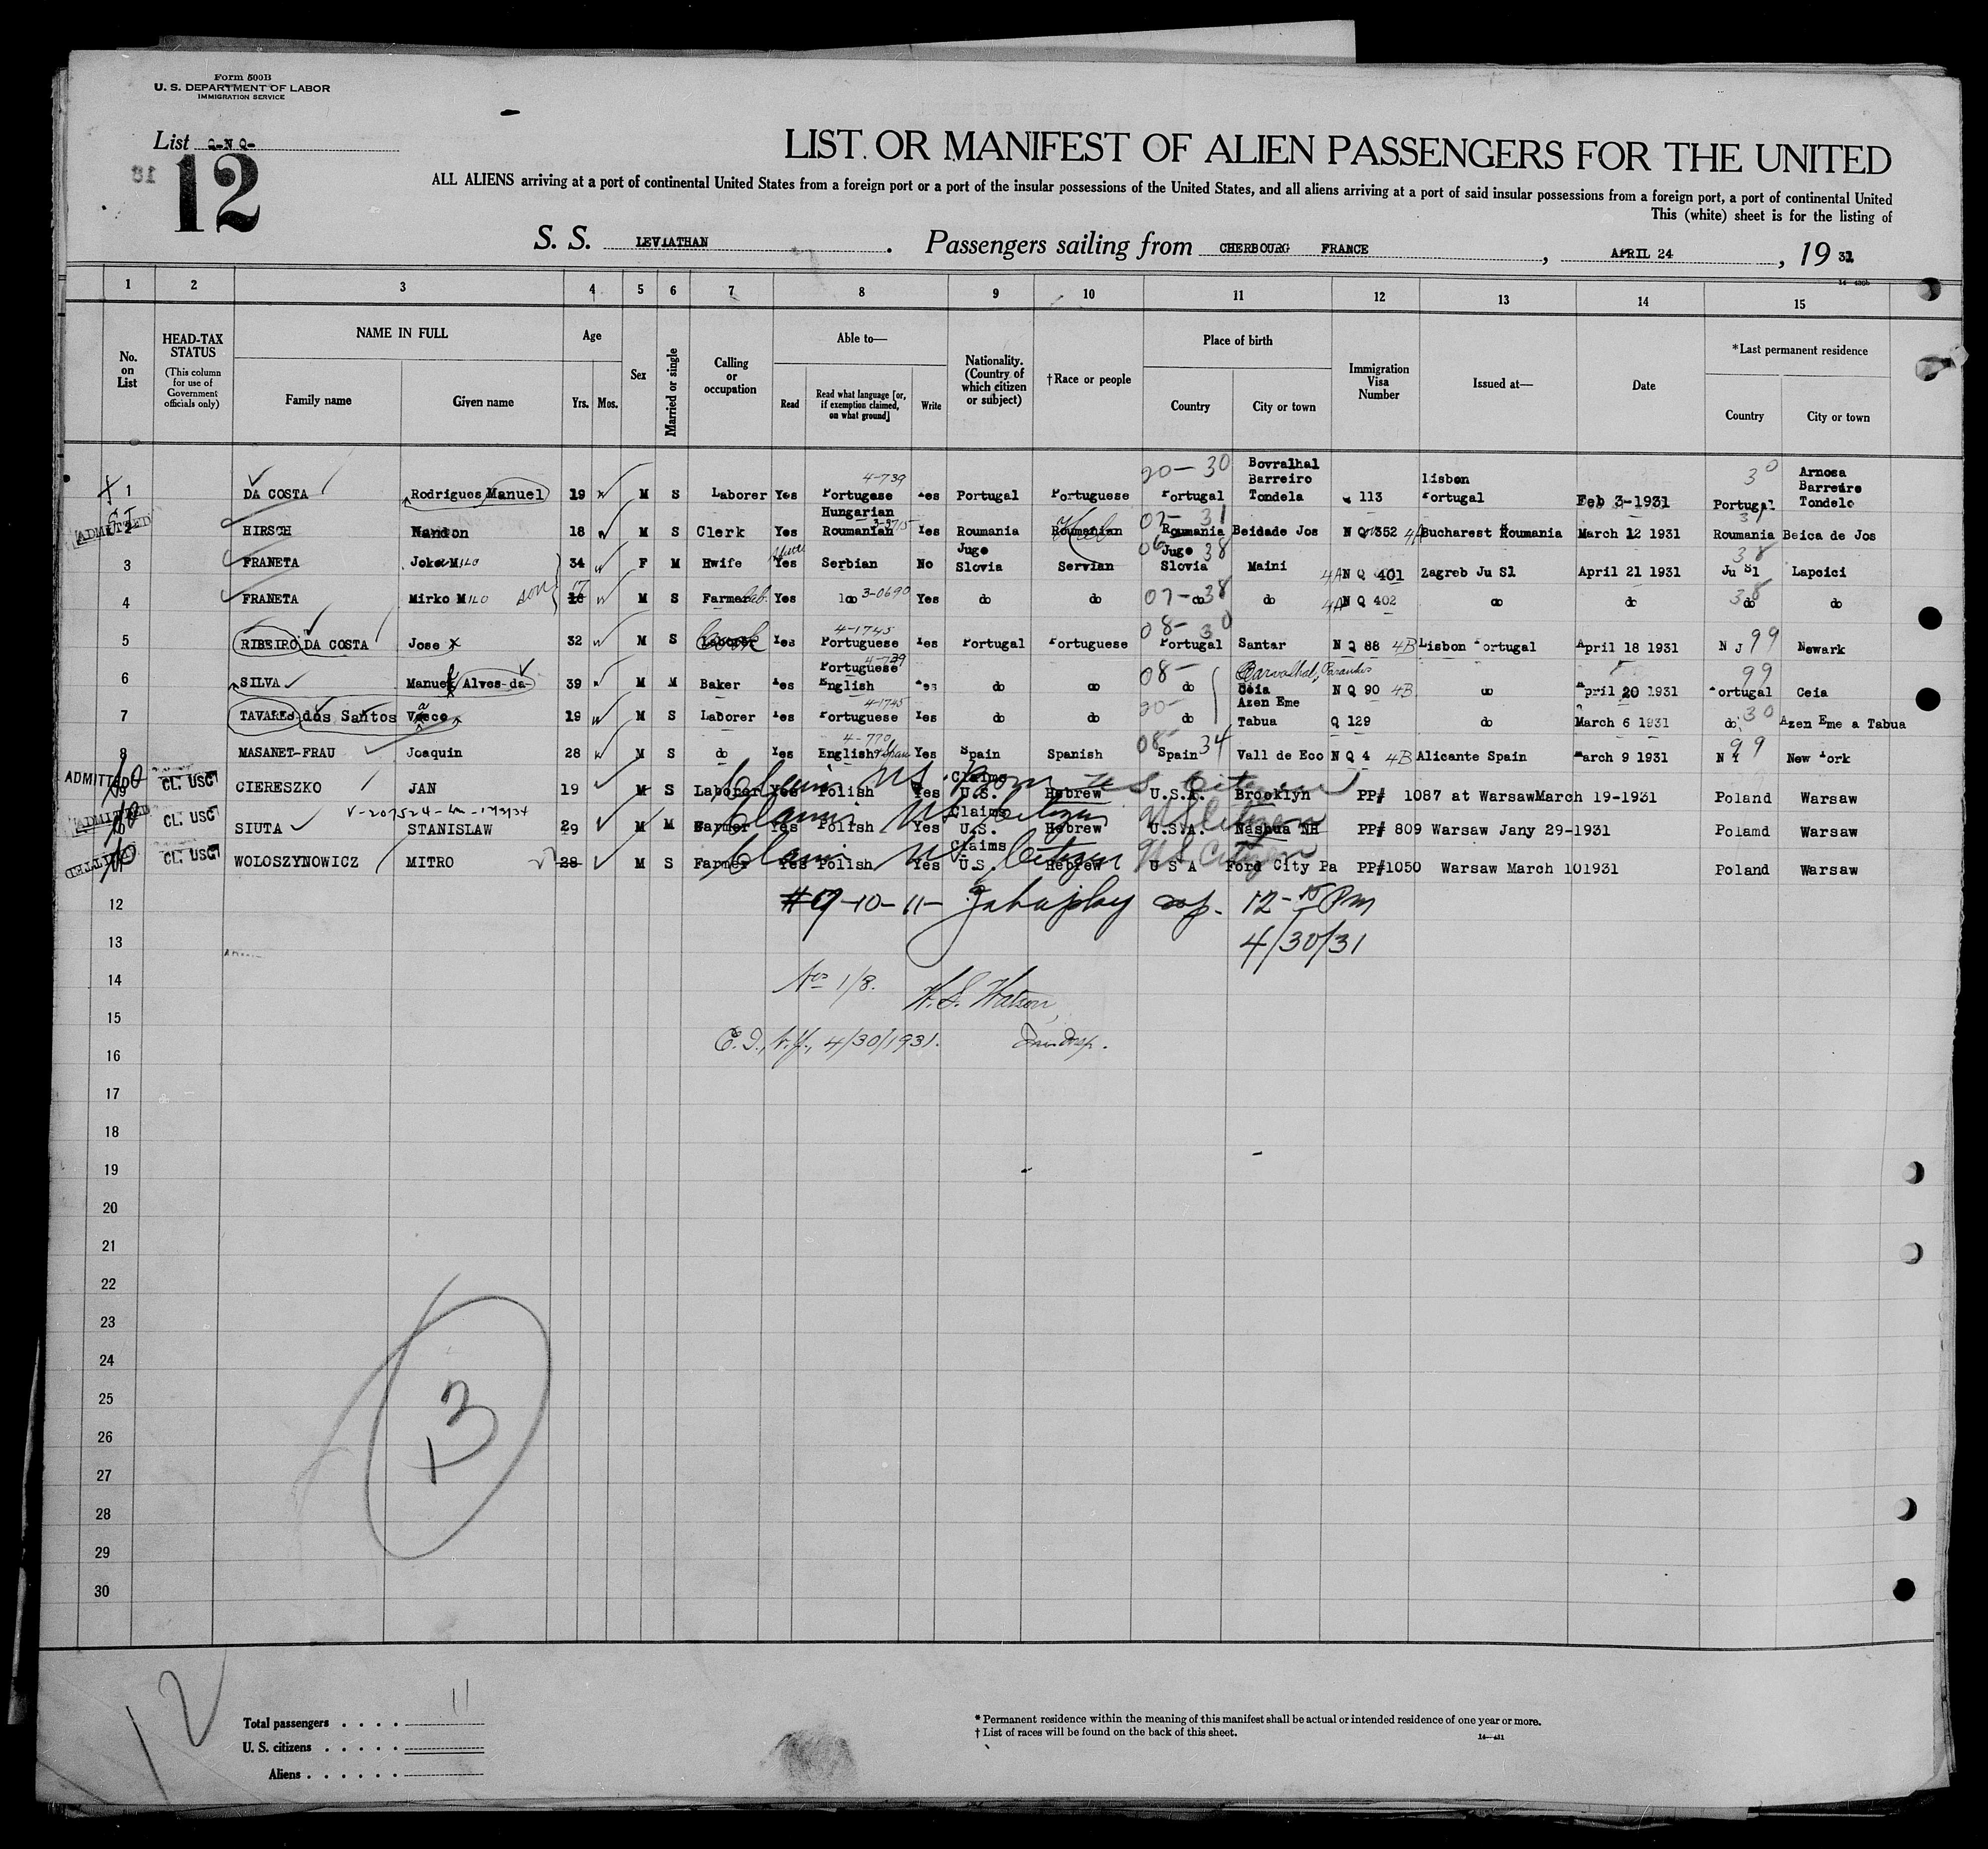 Form 500B
U. S. DEPARTMENT OF LABOR
IMMIGRATION SERVICE
List Q-N Q-
12
LIST OR MANIFEST OF ALIEN PASSENGERS FOR THE UNITED
ALL ALIENS arriving at a port of continental United States from a foreign port or a port of the insular possessions of the United States, and all aliens arriving at a port of said insular possessions from a foreign port, a port of continental United
This (white) sheet is for the listing of
S. S. LEVIATHAN. Passengers sailing from CHERBOURG FRANCE, APRIL 24, 19 31
1 2 3 4 5 6 7 8 9 10 11 12 13 14 15
No. on List
HEAD-TAX STATUS
(This column for use of Government officials only)
NAME IN FULL
Family name Given name
Age
Yrs. Mos.
Sex
Married or single
Calling or occupation
Able to—
Read
Read what language [or, if exemption claimed, on what ground]
Write
Nationality. (Country of which citizen or subject)
†Race or people
Place of birth
Country City or town
Immigration Visa Number
Issued at—
Date
*Last permanent residence
Country City or town
4-739 20-30 Bovralhal Barreiro 30 Arnosa Barreiro
1 DA COSTA Rodrigues Manuel 19 M S Laborer Yes Portugese Yes Portugal Portuguese Portugal Tondela Q 113 Lisbon Portugal Feb 3-1931 Portugal Tondelo
ADMITTED 2 HIRSCH Nandon 18 M S Clerk Yes Hungarian Roumanian Yes Roumania Roumanian Roumania Beidade Jos N Q 352 Bucharest Roumania March 12 1931 Roumania Beica de Jos
3 FRANETA Joka MILO 34 F M Hwife Yes Serbian No Jugo Slovia Servian Jugo Slovia Maini 4A N Q 401 Zagreb Ju Sl April 21 1931 Ju Sl Lapcici
4 FRANETA Mirko MILO son 17 M S Farmer Yes do 3-0690 Yes do do 07-38 do do 4A N Q 402 do do 38 do do
4-1745 08-30
5 RIBEIRO DA COSTA Jose 32 M S Laborer Yes Portuguese Yes Portugal Portuguese Portugal Santar N Q 88 4B Lisbon Portugal April 18 1931 N J 99 Newark
6 SILVA Manuel Alves-da- 39 M M Baker Yes Portuguese 4-739 English Yes do do 08- do Carvalhal, Ceia N Q 90 4B do April 20 1931 99 Portugal Ceia
7 TAVARES-dos Santos Vasco 19 M S Laborer Yes 4-1745 Portuguese Yes do do 20- do Azen Eme Tabua Q 129 do March 6 1931 do 30 Azen Eme a Tabua
8 MASANET-FRAU Joaquin 28 M S do Yes 4-770 English Yes Spain Spanish 08- Spain 34 Vall de Eco N Q 4 4B Alicante Spain March 9 1931 N Y 99 New York
ADMITTED 9 CL. USC CIERESZKO JAN 19 M S Laborer Yes Polish Yes Claims U.S. Hebrew U.S.A. Brooklyn PP# 1087 at Warsaw March 19-1931 Poland Warsaw
ADMITTED 10 CL. USC SIUTA STANISLAW 29 M M Farmer Yes Polish Yes Claims U.S. Hebrew U.S.A. Nashua NH PP# 809 Warsaw Jany 29-1931 Polamd Warsaw
ADMITTED 11 CL. USC WOLOSZYNOWICZ MITRO 28 M S Farmer Yes Polish Yes Claims U.S. Hebrew U S A Ford City Pa PP#1050 Warsaw March 101931 Poland Warsaw
12 #9-10-11- 12-15 Pm
13 4/30/31
14 Nos 1/8. W. S. Watson,
15
16 E. I., N. Y., 4/30/1931.
17
18
19
20
21
22
23
24
25
26
27
28
29
30
3
12
Total passengers . . . . 11
U. S. citizens . . . . .
Aliens . . . . . .
* Permanent residence within the meaning of this manifest shall be actual or intended residence of one year or more.
† List of races will be found on the back of this sheet.
14—431